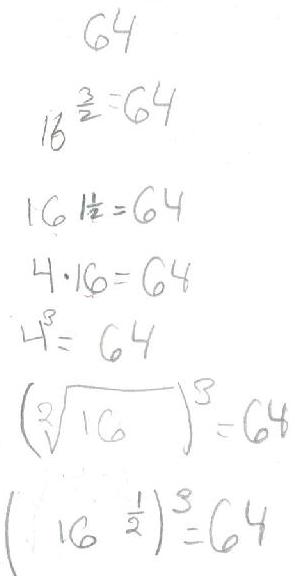 64
16^{3/2} = 64
16^{1 1/2} = 64
4·16 = 64
4^3 = 64
(\sqrt[2]{16})^3 = 64
(16^{1/2})^3 = 64